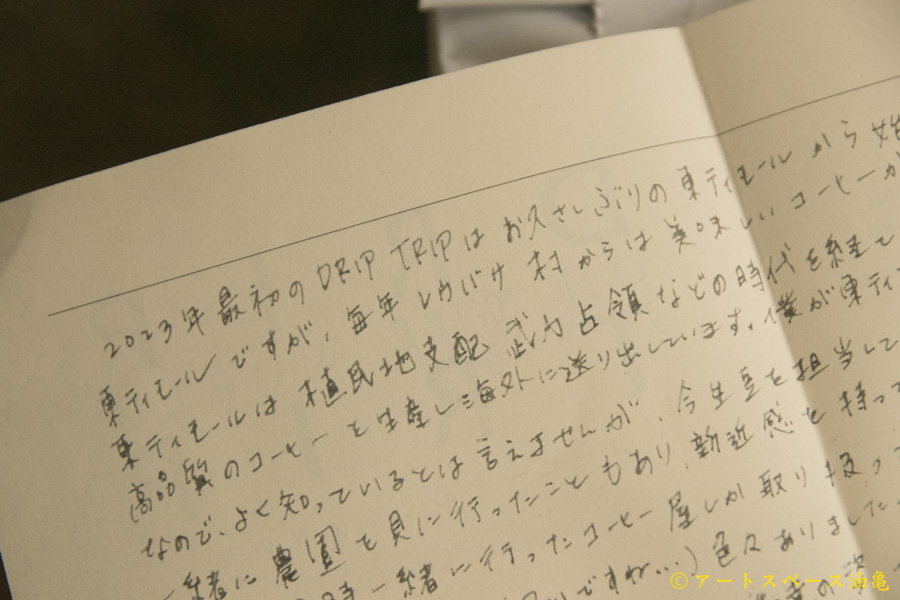 2023年最初のDRIP TRIPはお久さしぶりの東ティモールから始
東ティモールですが、毎年レウバケ村からは美味しいコーヒーが
東ティモールは植民地支配武力占領などの時代を経て
高品質のコーヒーを生産し海外に送り出しています。僕が東ティ
なので、よく知っているとは言えませんが、今生豆を担当して
一緒に農園を見に行ったこともあり、親近感を持って
時一緒に行ったコーヒー屋しか取り扱っ
ですね…)色々ありました
の次
©アートスペース油亀